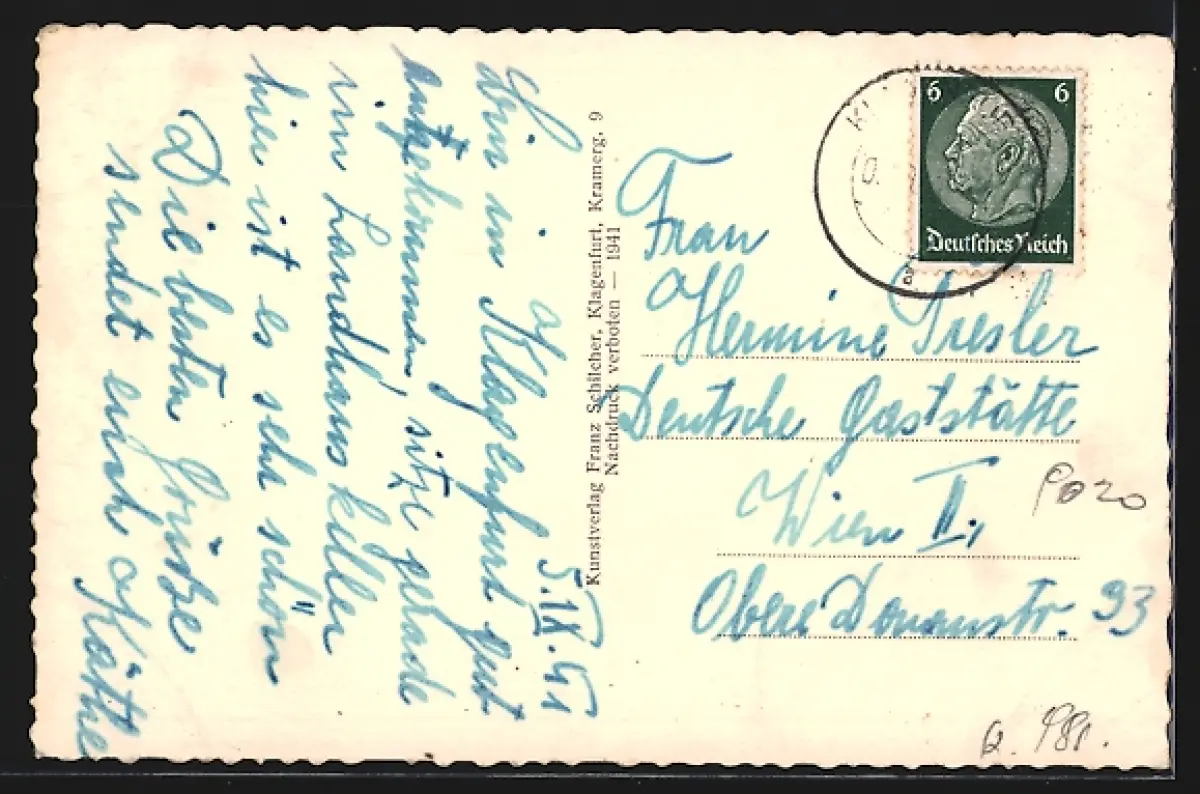 5.IX.41
bin in Klagenfurt gut
angekommen, sitze gerade
im Landhauskeller
hier ist es sehr schön
Die besten Grüsse
sendet euch Käthe
Kunstverlag Franz Schilcher, Klagenfurt, Kramerg. 9
Nachdruck verboten — 1941
6 6
Deutsches Reich
Frau
Hermine Presler
Deutsche Gaststätte
Wien II,
Obere Donaustr. 93
9020